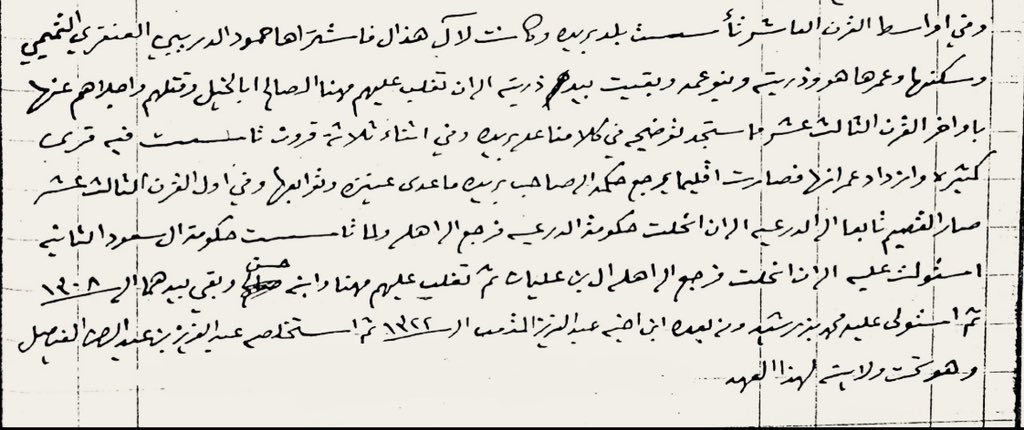 وفي اواسط القرن العاشر تأسست بلد بريده وكانت لآل هذال فاشتراها حمود الدريبي العنقري التميمي
وسكنها وعمرها هو وذريته وبنو عمه وبقيت بيد ذريته الى ان تغلب عليهم مهنا الصالح ابا الخيل وقتلهم واجلاهم عنها
باواخر القرن الثالث عشر ما ستجد توضيحه في كلامنا على بريده وفي اثناء ثلاثة قرون تأسست فيه قرى
كثيره وازداد عمرانها فصارت اقليما يرجع حكمه الى صاحب بريده ماعدى عنيزه وتوابعها وفي اول القرن الثالث عشر
صار القصيم تابعا الى الدرعيه الى ان انحلت حكومة الدرعيه فرجع الى اهله ولما تأسست حكومة ال سعود الثانيه
استولت عليه الى ان انحلت فرجع الى اهله ال بن عليان ثم تغلب عليهم مهنا وابنه حسن وبقي بيدهما الى ١٣٠٨
ثم استولى عليه محمد بن رشيد ومن بعده ابن اخيه عبدالعزيز المتعب الى ١٣٢٢ ثم استخلصه عبدالعزيز بن عبدالرحمن الفيصل
وهو تحت ولايته لهذا العهد